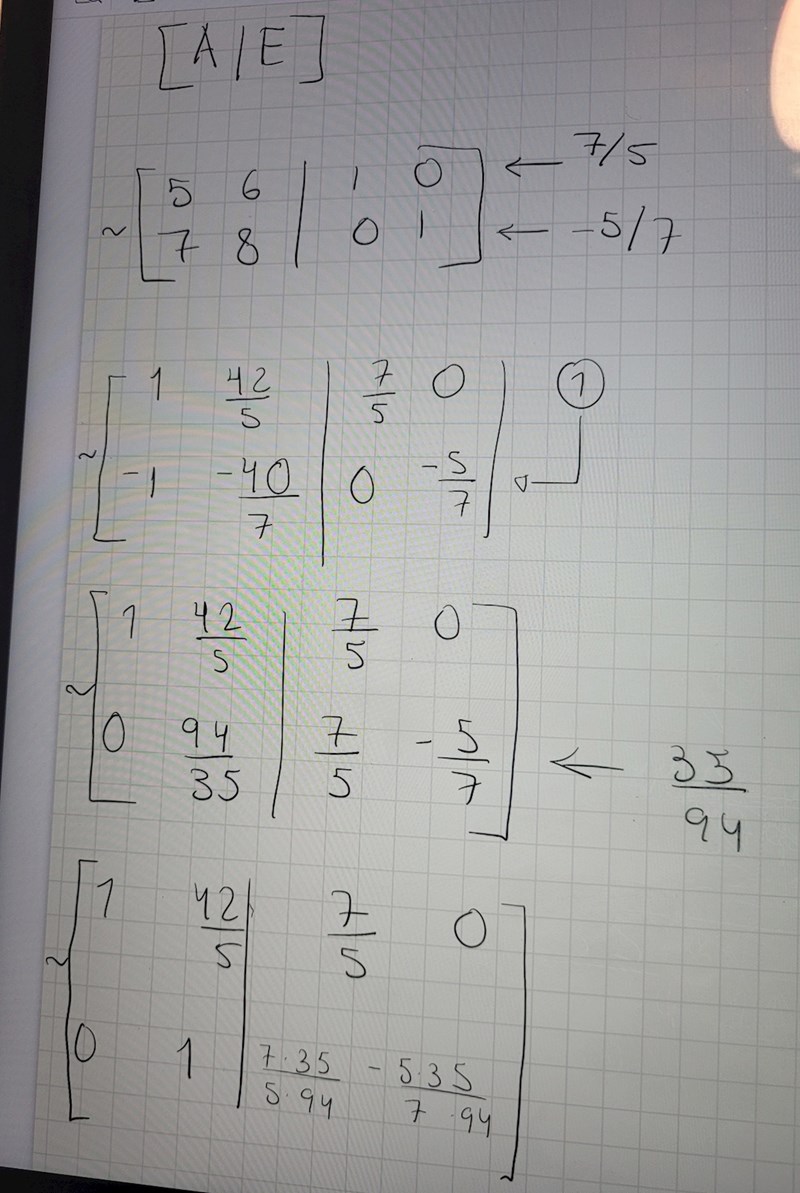 [A|E]
~ [5 6 | 1 0] ← 7/5
[7 8 | 0 1] ← -5/7
~ [1 42/5 | 7/5 0] ①
[-1 -40/7 | 0 -5/7]
~ [1 42/5 | 7/5 0]
[0 94/35 | 7/5 -5/7] ← 35/94
~ [1 42/5 | 7/5 0]
[0 1 | 7·35/5·94 -5·35/7·94]